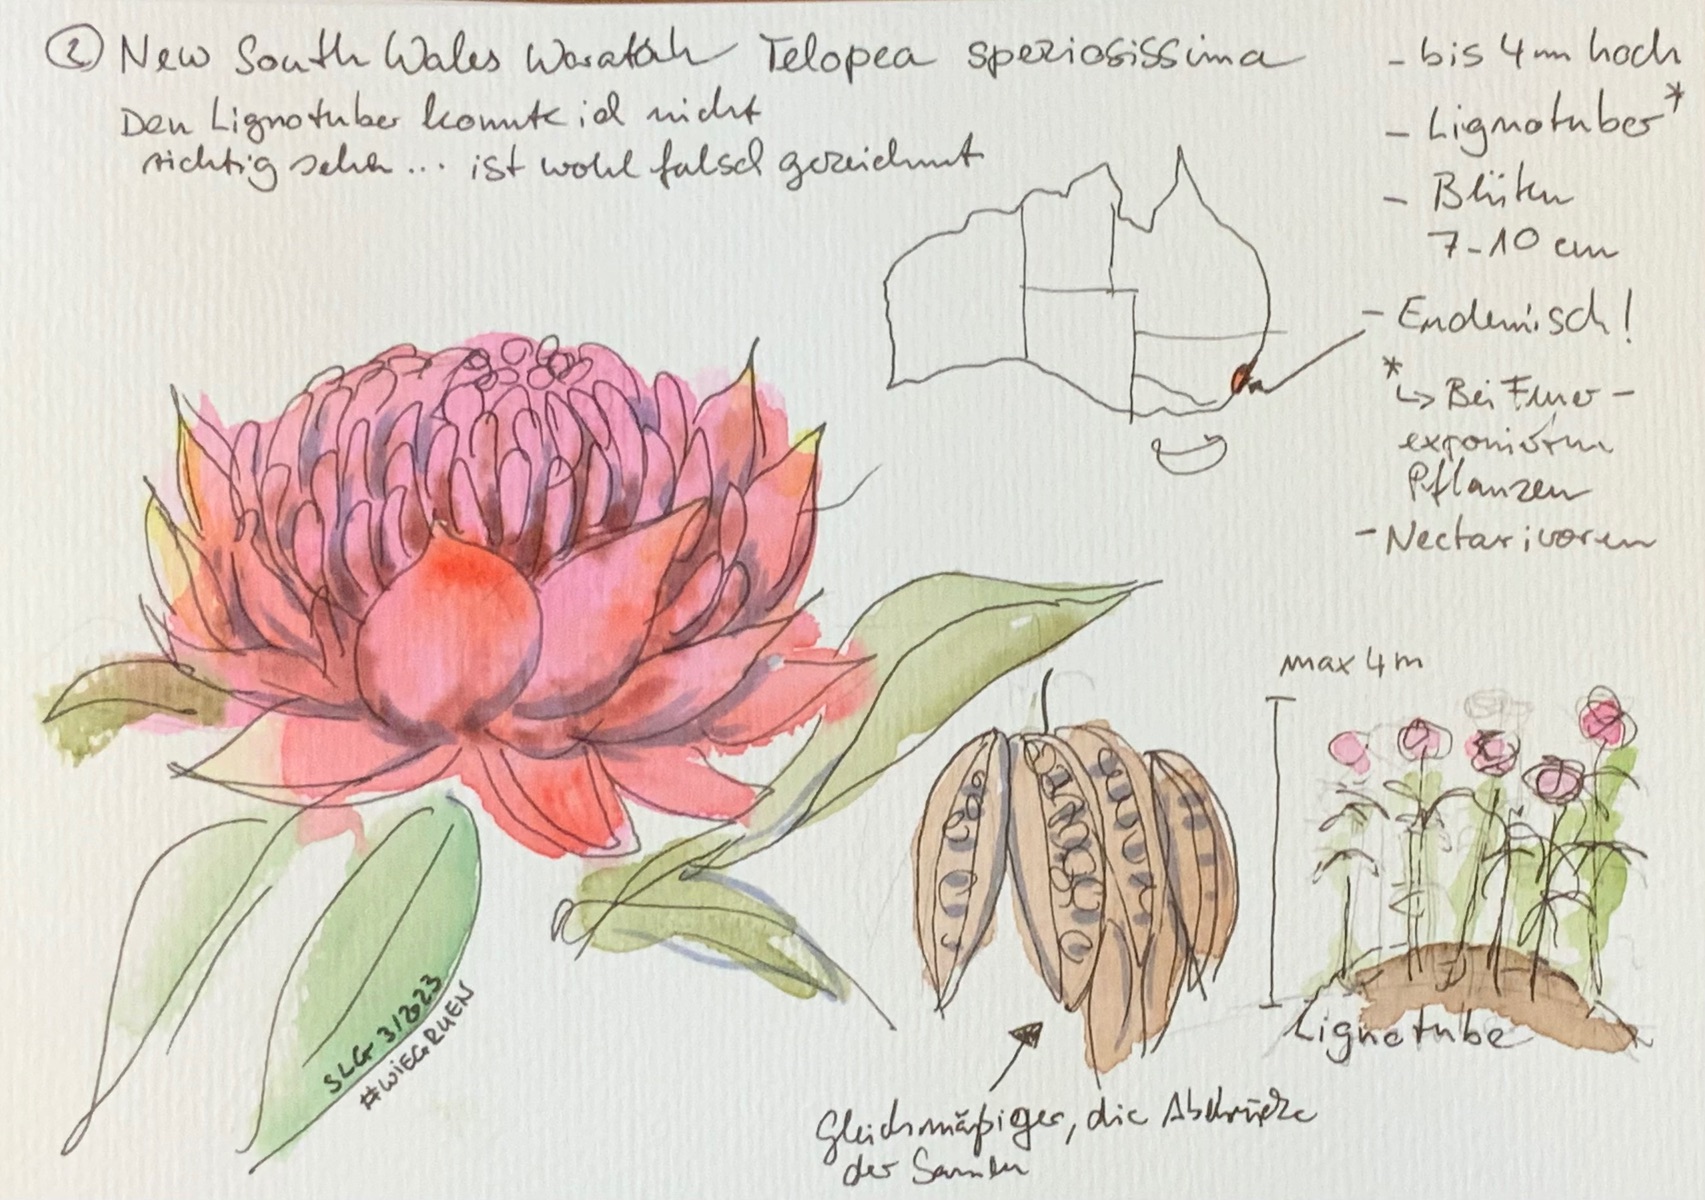 ② New South Wales Waratah Telopea speziosissima
Den Lignotuber konnte ich nicht
richtig sehen... ist wohl falsch gezeichnet
- bis 4 m hoch
- Lignotuber*
- Blüten
7-10 cm
- Endemisch!
*
↳ Bei Feuer-
exponierten
Pflanzen
- Nectarivoren
max 4 m
Lignotube
Gleichmäßiger, die Abdrücke
der Samen
SLG 3/2023
#WIEGRUEN